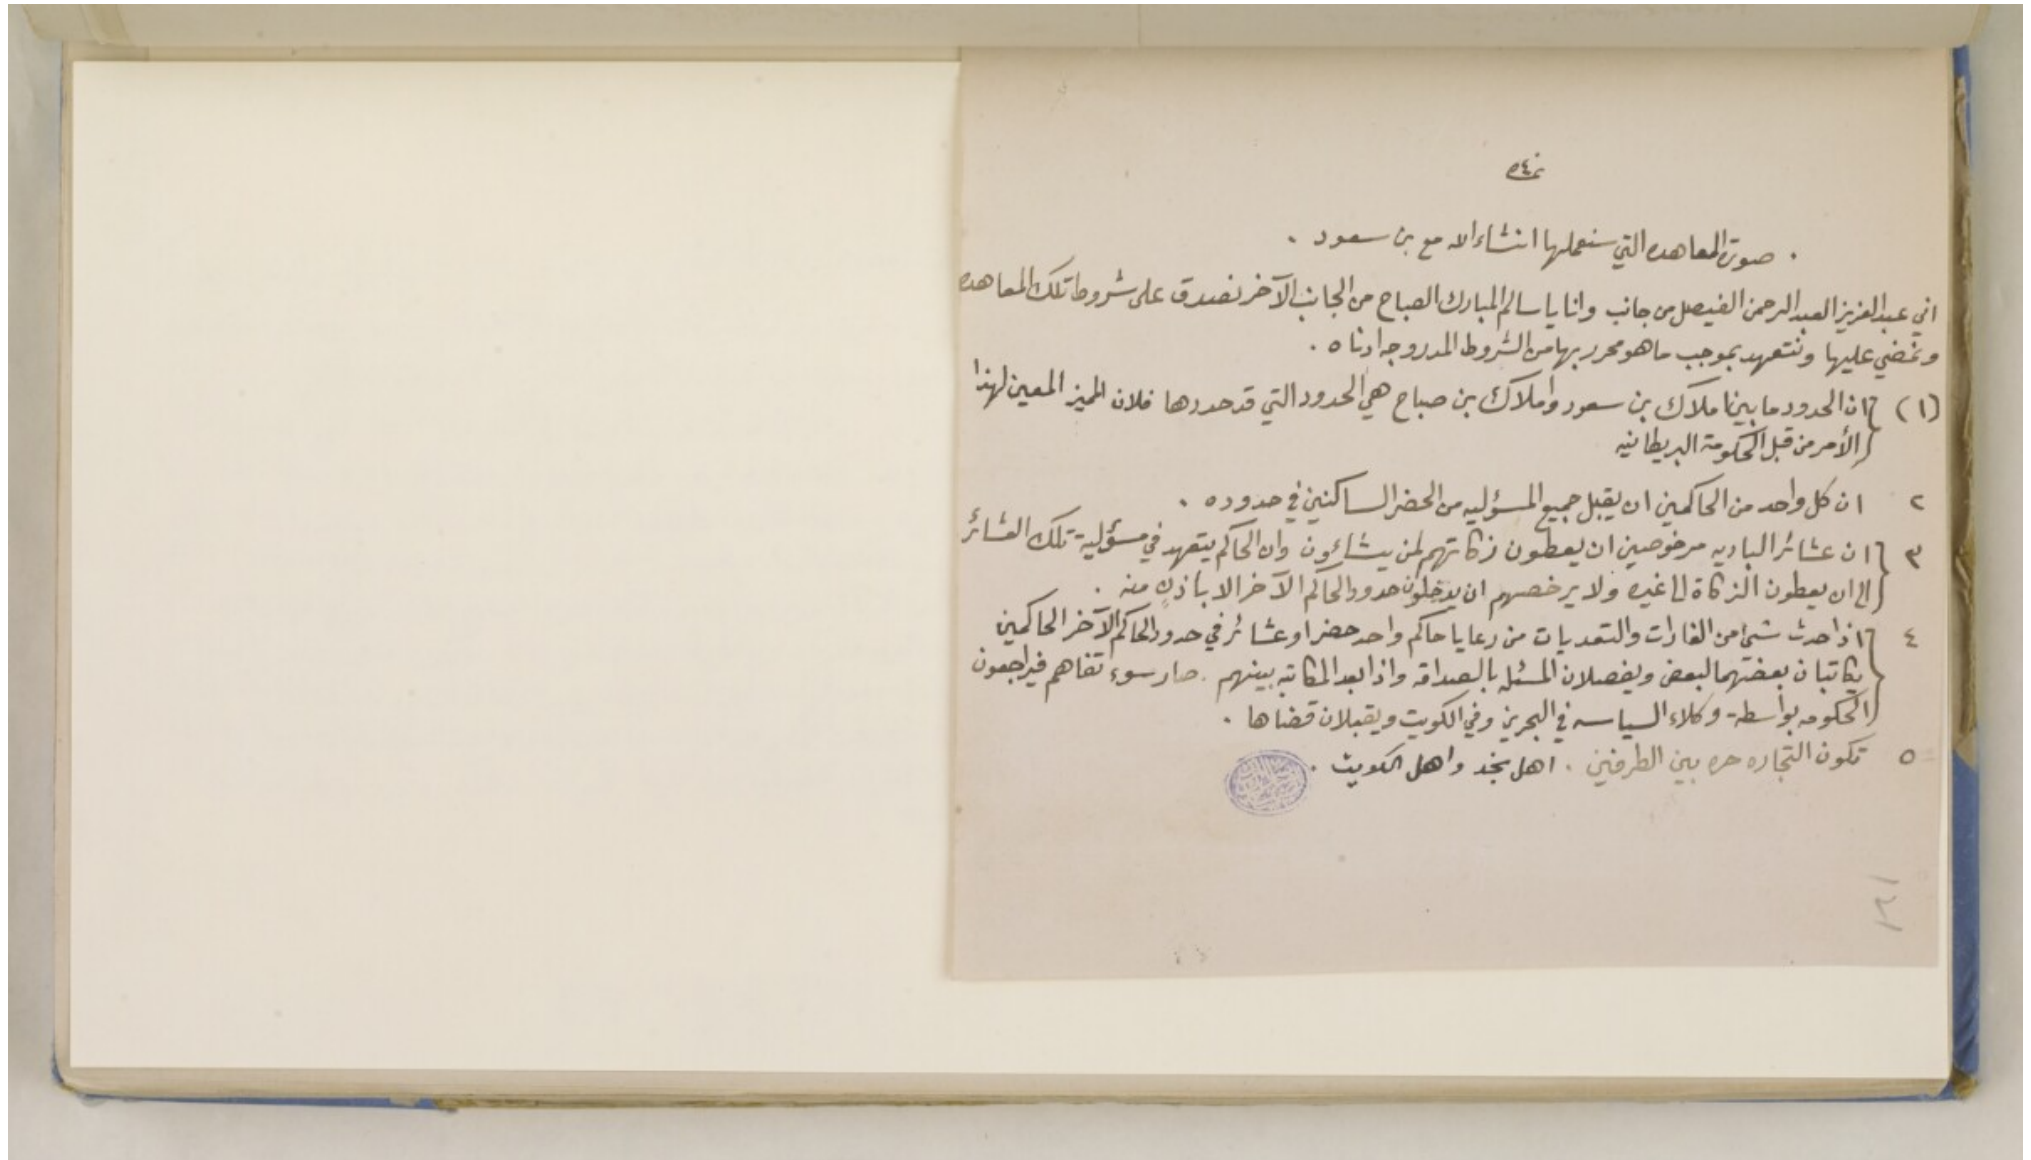 صورة المعاهده التي سنعملها انشاء الله مع بن سعود .
اني عبد العزيز العبد الرحمن الفيصل من جانب وانا يا سالم المبارك الصباح من الجانب الآخر نصدق على شروط تلك المعاهده
ونمضي عليها ونتعهد بموجب ما هو محرر بها من الشروط المدروجه ادناه .
(١) ان الحدود ما بين املاك بن سعود واملاك بن صباح هي الحدود التي قد حددها فلان المميز المعين لهذا
الأمر من قبل الحكومة البريطانيه
٢ ان كل واحد من الحاكمين ان يقبل جميع المسؤليه من الحضر الساكنين في حدوده .
٣ ان عشائر الباديه مرخوصين ان يعطون زكاتهم لمن يشاؤن وان الحاكم يتعهد في مسؤلية تلك العشائر
الى ان يعطون الزكاة الى غيره ولا يرخصهم ان يدخلون حدود الحاكم الآخر الا باذنٍ منه .
٤ اذا حدث شئ من الغارات والتعديات من رعايا حاكم واحد حضر او عشائر في حدود الحاكم الآخر الحاكمين
يكاتبان بعضهما لبعض ويفصلان المسئله بالصداقه واذا بعد المكاتبه بينهم صار سوء تفاهم فيراجعون
الحكومه بواسطة وكلاء السياسه في البحرين وفي الكويت ويقبلان قضاها .
٥ تكون التجاره حره بين الطرفين . اهل نجد واهل الكويت .